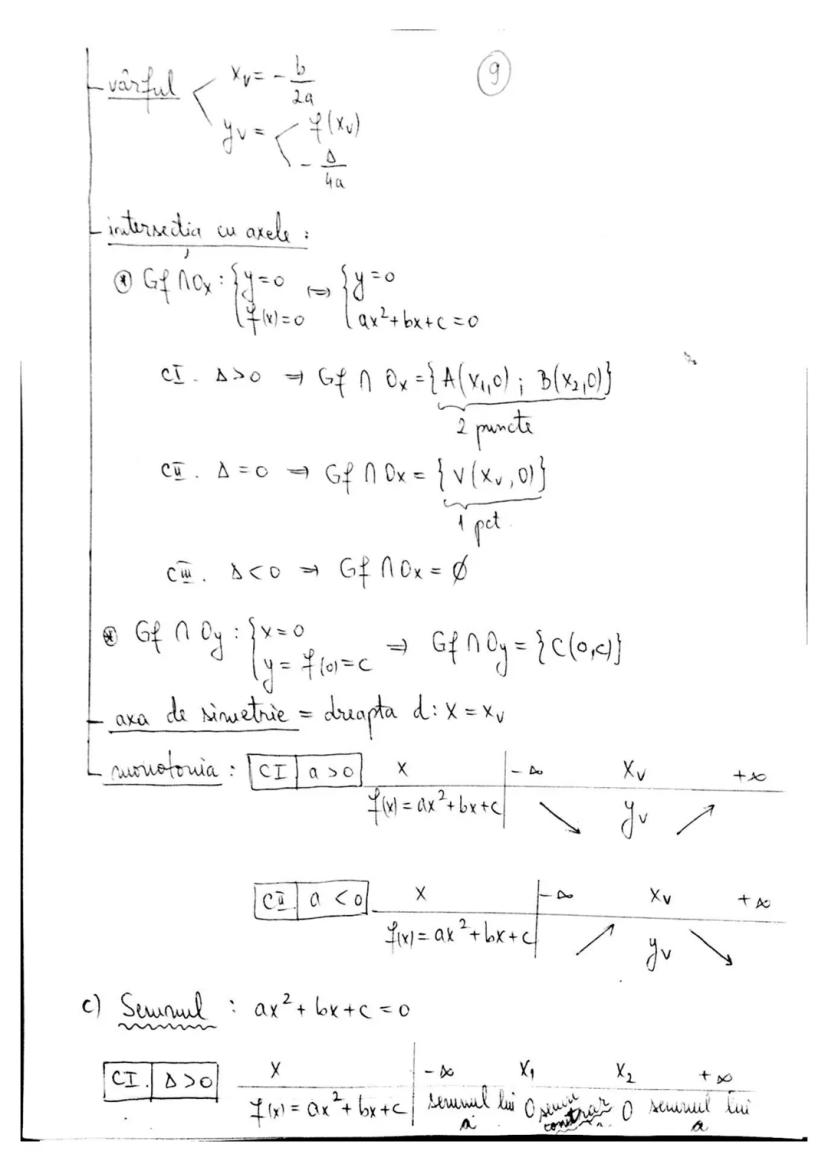 9
vârful x_v = - b/2a
y_v = f(x_v)
- Δ/4a
intersecția cu axele :
* Gf ∩ Ox : { y=0 ⇔ { y=0
f(x)=0 ax²+bx+c=0
CI. Δ>0 ⇒ Gf ∩ Ox = {A(x₁,0) ; B(x₂,0)}
2 puncte
CII. Δ=0 ⇒ Gf ∩ Ox = {V(x_v,0)}
1 pct.
CIII. Δ<0 ⇒ Gf ∩ Ox = ∅
* Gf ∩ Oy : { x=0
y = f(0)=c ⇒ Gf ∩ Oy = {C(0,c)}
axa de simetrie = dreapta d: x = x_v
monotonia : CI a>0 x -∞ x_v +∞
f(x)=ax²+bx+c ↘ y_v ↗
CII a<0 x -∞ x_v +∞
f(x)=ax²+bx+c ↗ y_v ↘
c) Semnul : ax²+bx+c=0
CI. Δ>0 x -∞ x₁ x₂ +∞
f(x)=ax²+bx+c semnul lui a 0 semn contrar 0 semnul lui a